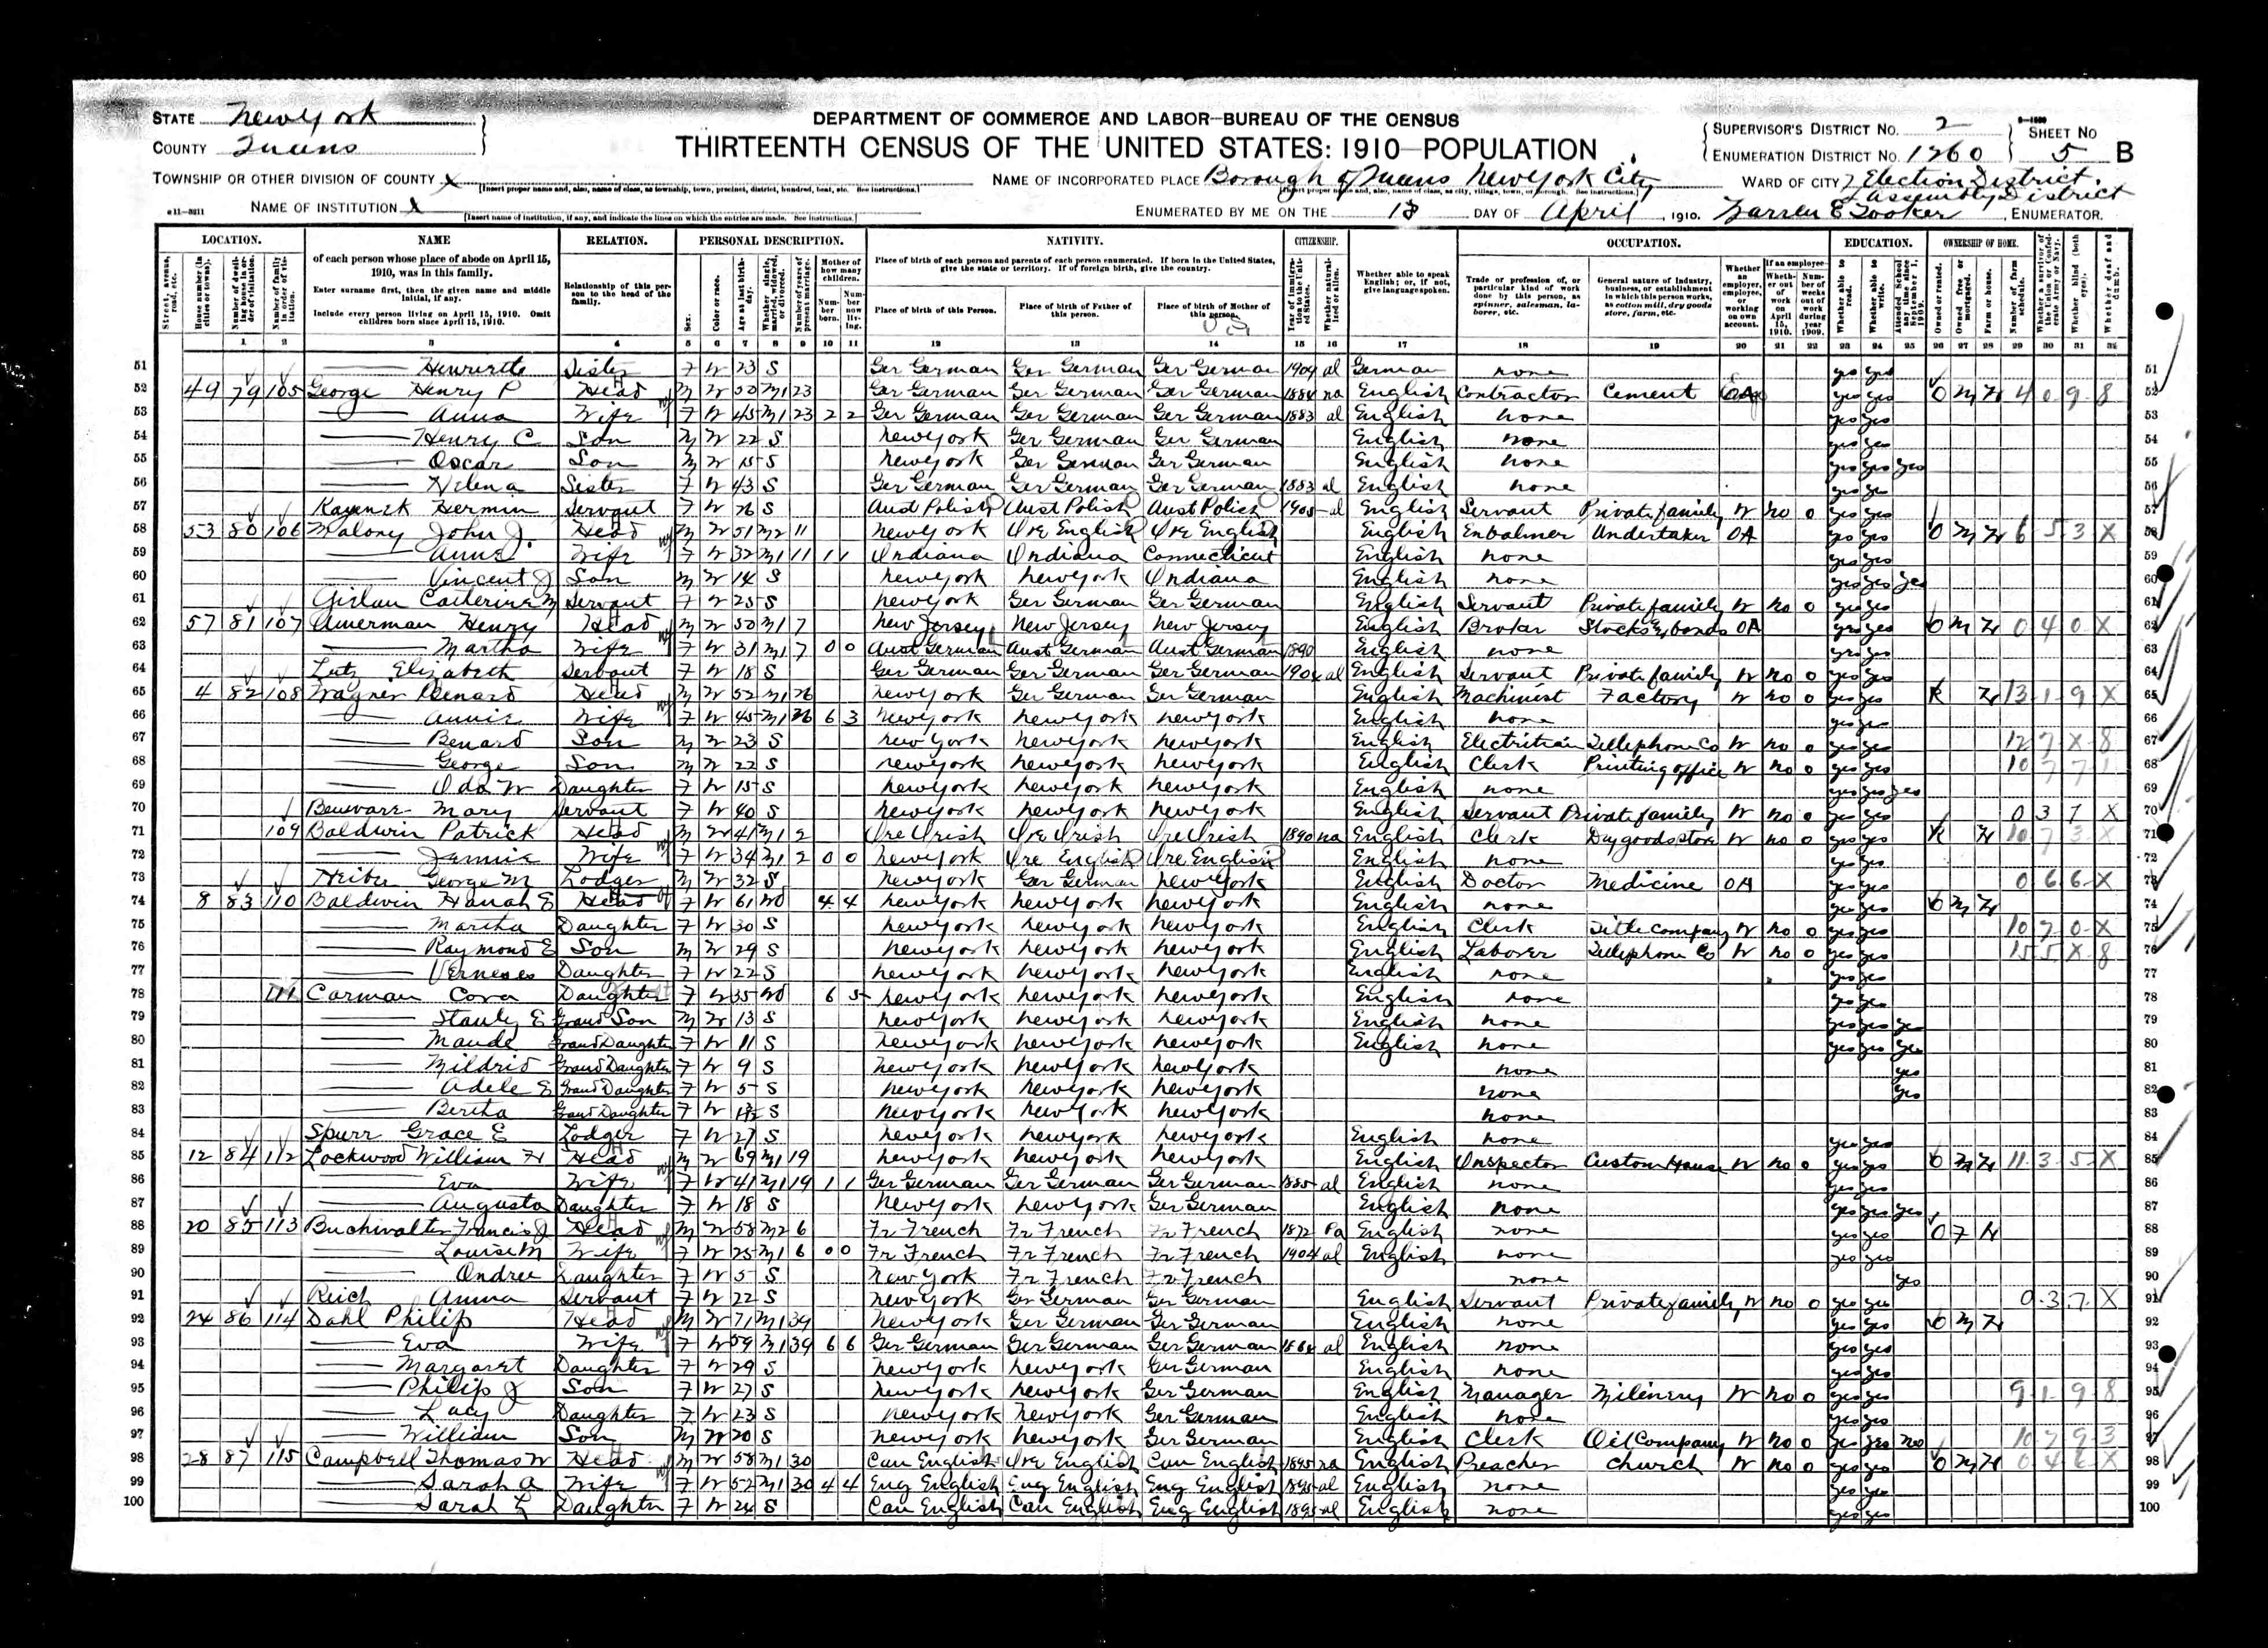 DEPARTMENT OF COMMERCE AND LABOR—BUREAU OF THE CENSUS
THIRTEENTH CENSUS OF THE UNITED STATES: 1910—POPULATION
STATE New York
COUNTY Queens
SUPERVISOR'S DISTRICT No. 2
ENUMERATION DISTRICT No. 1260
SHEET No 5 B
TOWNSHIP OR OTHER DIVISION OF COUNTY X
NAME OF INCORPORATED PLACE Borough of Queens New York City
WARD OF CITY Election District Assembly District
NAME OF INSTITUTION X
ENUMERATED BY ME ON THE 18 DAY OF April, 1910. Warren E Tooker, ENUMERATOR.
LOCATION. NAME RELATION. PERSONAL DESCRIPTION. NATIVITY. CITIZENSHIP. OCCUPATION. EDUCATION. OWNERSHIP OF HOME.
of each person whose place of abode on April 15, 1910, was in this family.
Enter surname first, then the given name and middle initial, if any.
Include every person living on April 15, 1910. Omit children born since April 15, 1910.
Relationship of this person to the head of the family.
Place of birth of each person and parents of each person enumerated. If born in the United States, give the state or territory. If of foreign birth, give the country.
Place of birth of this Person. Place of birth of Father of this person. Place of birth of Mother of this person.
Whether able to speak English; or, if not, give language spoken.
51 Henriette Sister F W 23 S Ger German Ger German Ger German 1904 al German none yes yes 51
52 49 79 105 George Henry P Head M W 50 M1 23 Ger German Ger German Ger German 1884 na English Contractor Cement yes yes O M H 4 0 9 8 52
53 Anna Wife F W 45 M1 23 2 2 Ger German Ger German Ger German 1883 al English none yes yes 53
54 Henry C Son M W 22 S New York Ger German Ger German English none yes yes 54
55 Oscar Son M W 15 S New York Ger German Ger German English none yes yes yes 55
56 Helena Sister F W 43 S Ger German Ger German Ger German 1883 al English none yes yes 56
57 Hermin Servant F W 26 S Aust Polish Aust Polish Aust Polish 1905 al English Servant Private family W no 0 yes yes 57
58 53 80 106 Malony John J. Head M W 51 M2 11 New York Ire English Ire English English Enbalmer Undertaker OA yes yes O M H 6 5 3 X 58
59 Anna Wife F W 32 M1 11 1 1 Indiana Indiana Connecticut English none yes yes 59
60 Vincent J Son M W 14 S New York New York Indiana English none yes yes yes 60
61 Catherine M Servant F W 25 S New York Ger German Ger German English Servant Private family W no 0 yes yes 61
62 57 81 107 Amerman Henry Head M W 50 M1 7 New Jersey New Jersey New Jersey English Broker Stocks & bonds OA yes yes O M H 0 4 0 X 62
63 Martha Wife F W 31 M1 7 0 0 Aust German Aust German Aust German 1890 English none yes yes 63
64 Lutz Elizabeth Servant F W 18 S Ger German Ger German Ger German 1904 al English Servant Private family W no 0 yes yes 64
65 4 82 108 Wagner Benard Head M W 52 M1 26 New York Ger German Ger German English Machinist Factory W no 0 yes yes R H 13 1 9 X 65
66 Annie Wife F W 45 M1 26 6 3 New York New York New York English none yes yes 66
67 Benard Son M W 23 S New York New York New York English Electritian Tellephone Co W no 0 yes yes 12 7 X 8 67
68 George Son M W 22 S New York New York New York English Clerk Printing office W no 0 yes yes 10 7 7 1 68
69 Ida W Daughter F W 15 S New York New York New York English none yes yes yes 69
70 Mary Servant F W 40 S New York New York New York English Servant Private family W no 0 yes yes 0 3 7 X 70
71 109 Baldwin Patrick Head M W 41 M1 2 Ire Irish Ire Irish Ire Irish 1890 na English Clerk Drygoods store W no 0 yes yes R H 10 7 3 X 71
72 Jennie Wife F W 34 M1 2 0 0 New York Ire English Ire English English none yes yes 72
73 George M Lodger M W 32 S New York Ger German New York English Doctor Medicine OA yes yes 0 6 6 X 73
74 8 83 110 Baldwin Hanah E Head F W 61 Wd 4 4 New York New York New York English none yes yes O M H 74
75 Martha Daughter F W 30 S New York New York New York English Clerk Title company W no 0 yes yes 10 7 0 X 75
76 Raymond E Son M W 29 S New York New York New York English Laborer Tellephone Co W no 0 yes yes 15 5 X 8 76
77 Daughter F W 22 S New York New York New York English none yes yes 77
78 111 Carman Cora Daughter F W 35 Wd 6 5 New York New York New York English none yes yes 78
79 Stanly E Grand Son M W 13 S New York New York New York English none yes yes yes 79
80 Maude Grand Daughter F W 11 S New York New York New York English none yes yes yes 80
81 Mildrid Grand Daughter F W 9 S New York New York New York none yes 81
82 Adele E Grand Daughter F W 5 S New York New York New York none yes 82
83 Bertha Grand Daughter F W S New York New York New York none 83
84 Spurr Grace E Lodger F W 27 S New York New York New York English none yes yes 84
85 12 84 112 Lockwood William H Head M W 69 M1 19 New York New York New York English Inspector Custom House W no 0 yes yes O M H 11 3 5 X 85
86 Eva Wife F W 41 M1 19 1 1 Ger German Ger German Ger German 1885 al English none yes yes 86
87 Augusta Daughter F W 18 S New York New York Ger German English none yes yes yes 87
88 20 85 113 Buchwalter Francis J Head M W 58 M2 6 Fr French Fr French Fr French 1872 Pa English none yes yes O F H 88
89 Louise M Wife F W 25 M1 6 0 0 Fr French Fr French Fr French 1904 al English none yes yes 89
90 Ondree Daughter F W 5 S New York Fr French Fr French none yes 90
91 Reich Anna Servant F W 22 S New York Ger German Ger German English Servant Private family W no 0 yes yes 0 3 7 X 91
92 24 86 114 Dahl Philip Head M W 71 M1 39 New York Ger German Ger German English none yes yes O M H 92
93 Eva Wife F W 59 M1 39 6 6 Ger German Ger German Ger German 1864 al English none yes yes 93
94 Margaret Daughter F W 29 S New York New York Ger German English none yes yes 94
95 Philip J Son F W 27 S New York New York Ger German English Manager Milinery W no 0 yes yes 9 1 9 8 95
96 Lucy Daughter F W 23 S New York New York Ger German English none yes yes 96
97 William Son M W 20 S New York New York Ger German English Clerk Oil Company W no 0 yes yes no 10 7 9 3 97
98 28 87 115 Campbell Thomas W Head M W 58 M1 30 Can English Ire English Can English 1895 na English Preacher Church W no 0 yes yes O M H 0 4 X 98
99 Sarah A Wife F W 52 M1 30 4 4 Eng English Eng English Eng English 1895 al English none yes yes 99
100 Sarah L Daughter F W 24 S Can English Can English Eng English 1895 al English none yes yes 100